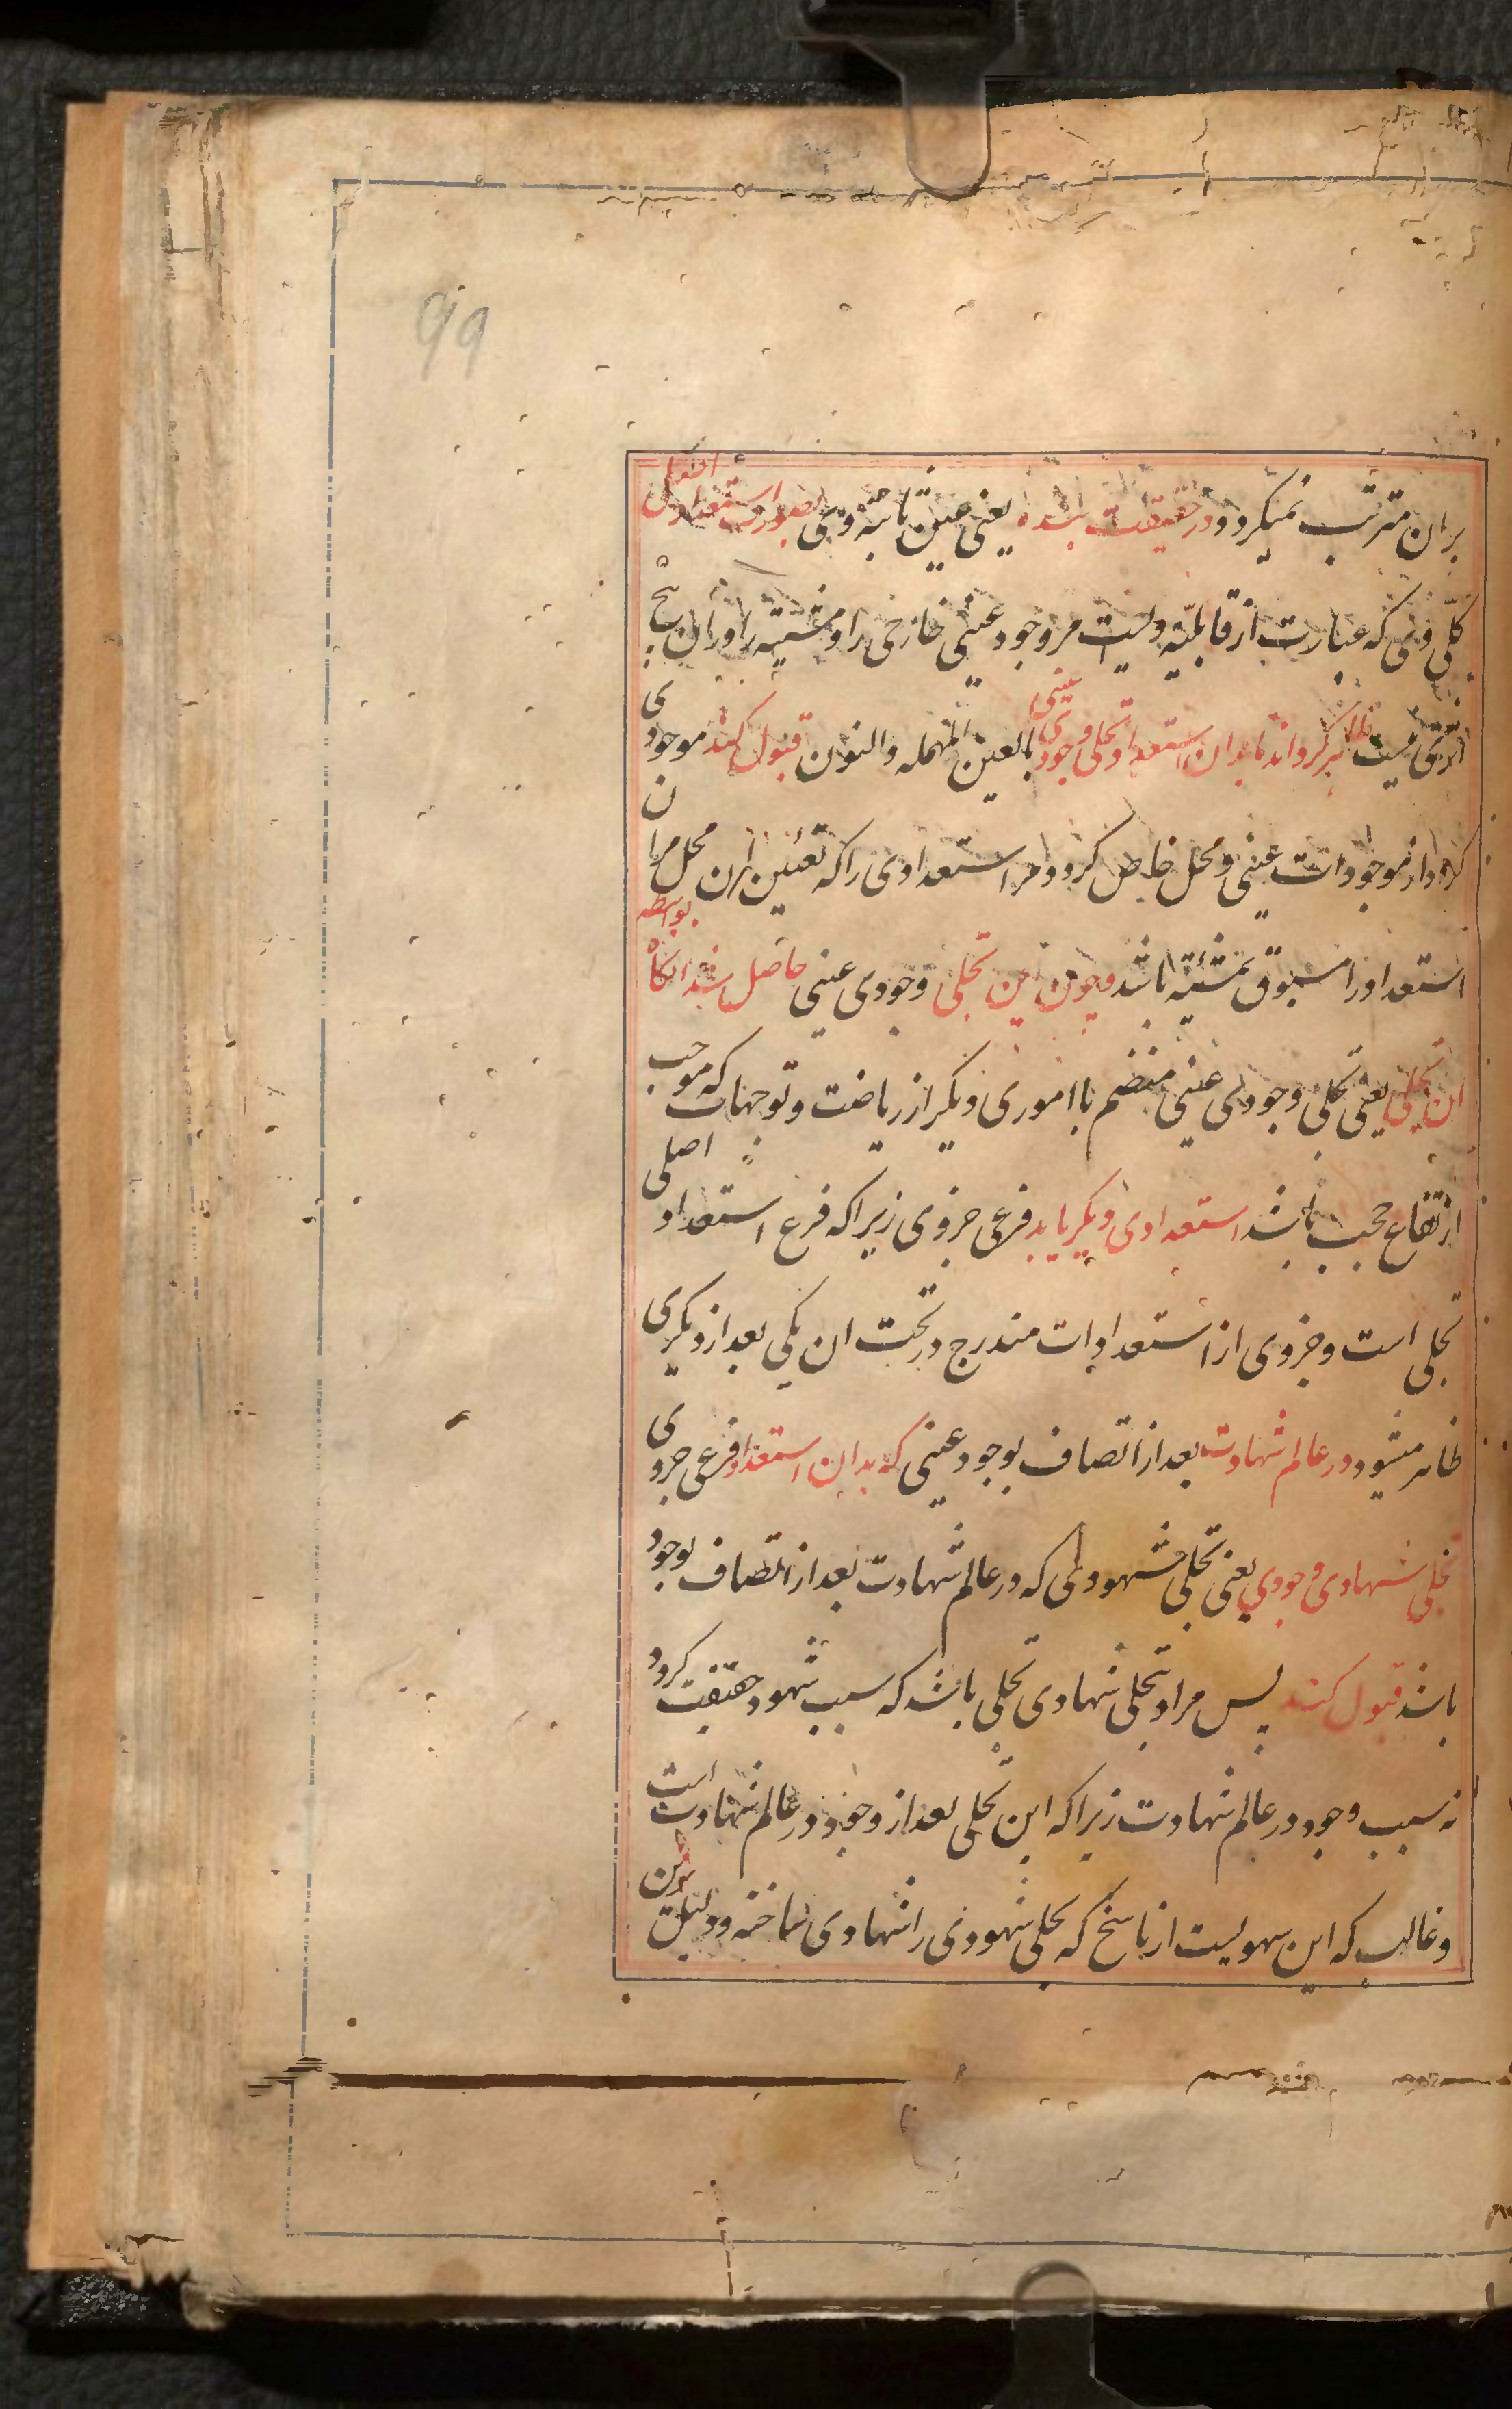 99
بران مترتب نمیکردد در حقیقت بنده یعنی عین ثابته وی بصور استعداد اصلی
کلی وی که عبارت از قابلیت ویست مر وجود عینی خارجی را و مشیته را در ان هیچ
اثری نیست ظاهر کرداند تا بدان استعداد تجلی وجودی عینی بالعین المهمله والنون قبول کند موجودی
کردد از موجودات عینی و محل خاص کردد مر استعدادی را که تعین ان محل مر ان
استعداد را مسبوق بمشیته باشد و چون این تجلی وجودی عینی حاصل شد انکاه بواسطه
ان تجلی یعنی تجلی وجودی عینی منضم با اموری دیکر از ریاضت و توجهات که موجب
ارتفاع حجب باشد استعدادی دیکر یابد فرعی جزوی زیرا که فرع استعداد اصلی
تجلی است و جزوی از استعدادات مندرج در تحت ان یکی بعد از دیکری
ظاهر میشود در عالم شهادت بعد از اتصاف بوجود عینی که بدان استعداد فرعی جزوی
تجلی شهادی وجودی یعنی تجلی شهودی که در عالم شهادت بعد از اتصاف بوجود
باشد قبول کند پس مراد بتجلی شهادی تجلی باشد که سبب شهود حقیقت کردد
نه سبب وجود در عالم شهادت زیرا که این تجلی بعد از وجود در عالم شهادت است
و غالب که این سهویست از ناسخ که تجلی شهودی را شهادی ساخته و دلیل برین